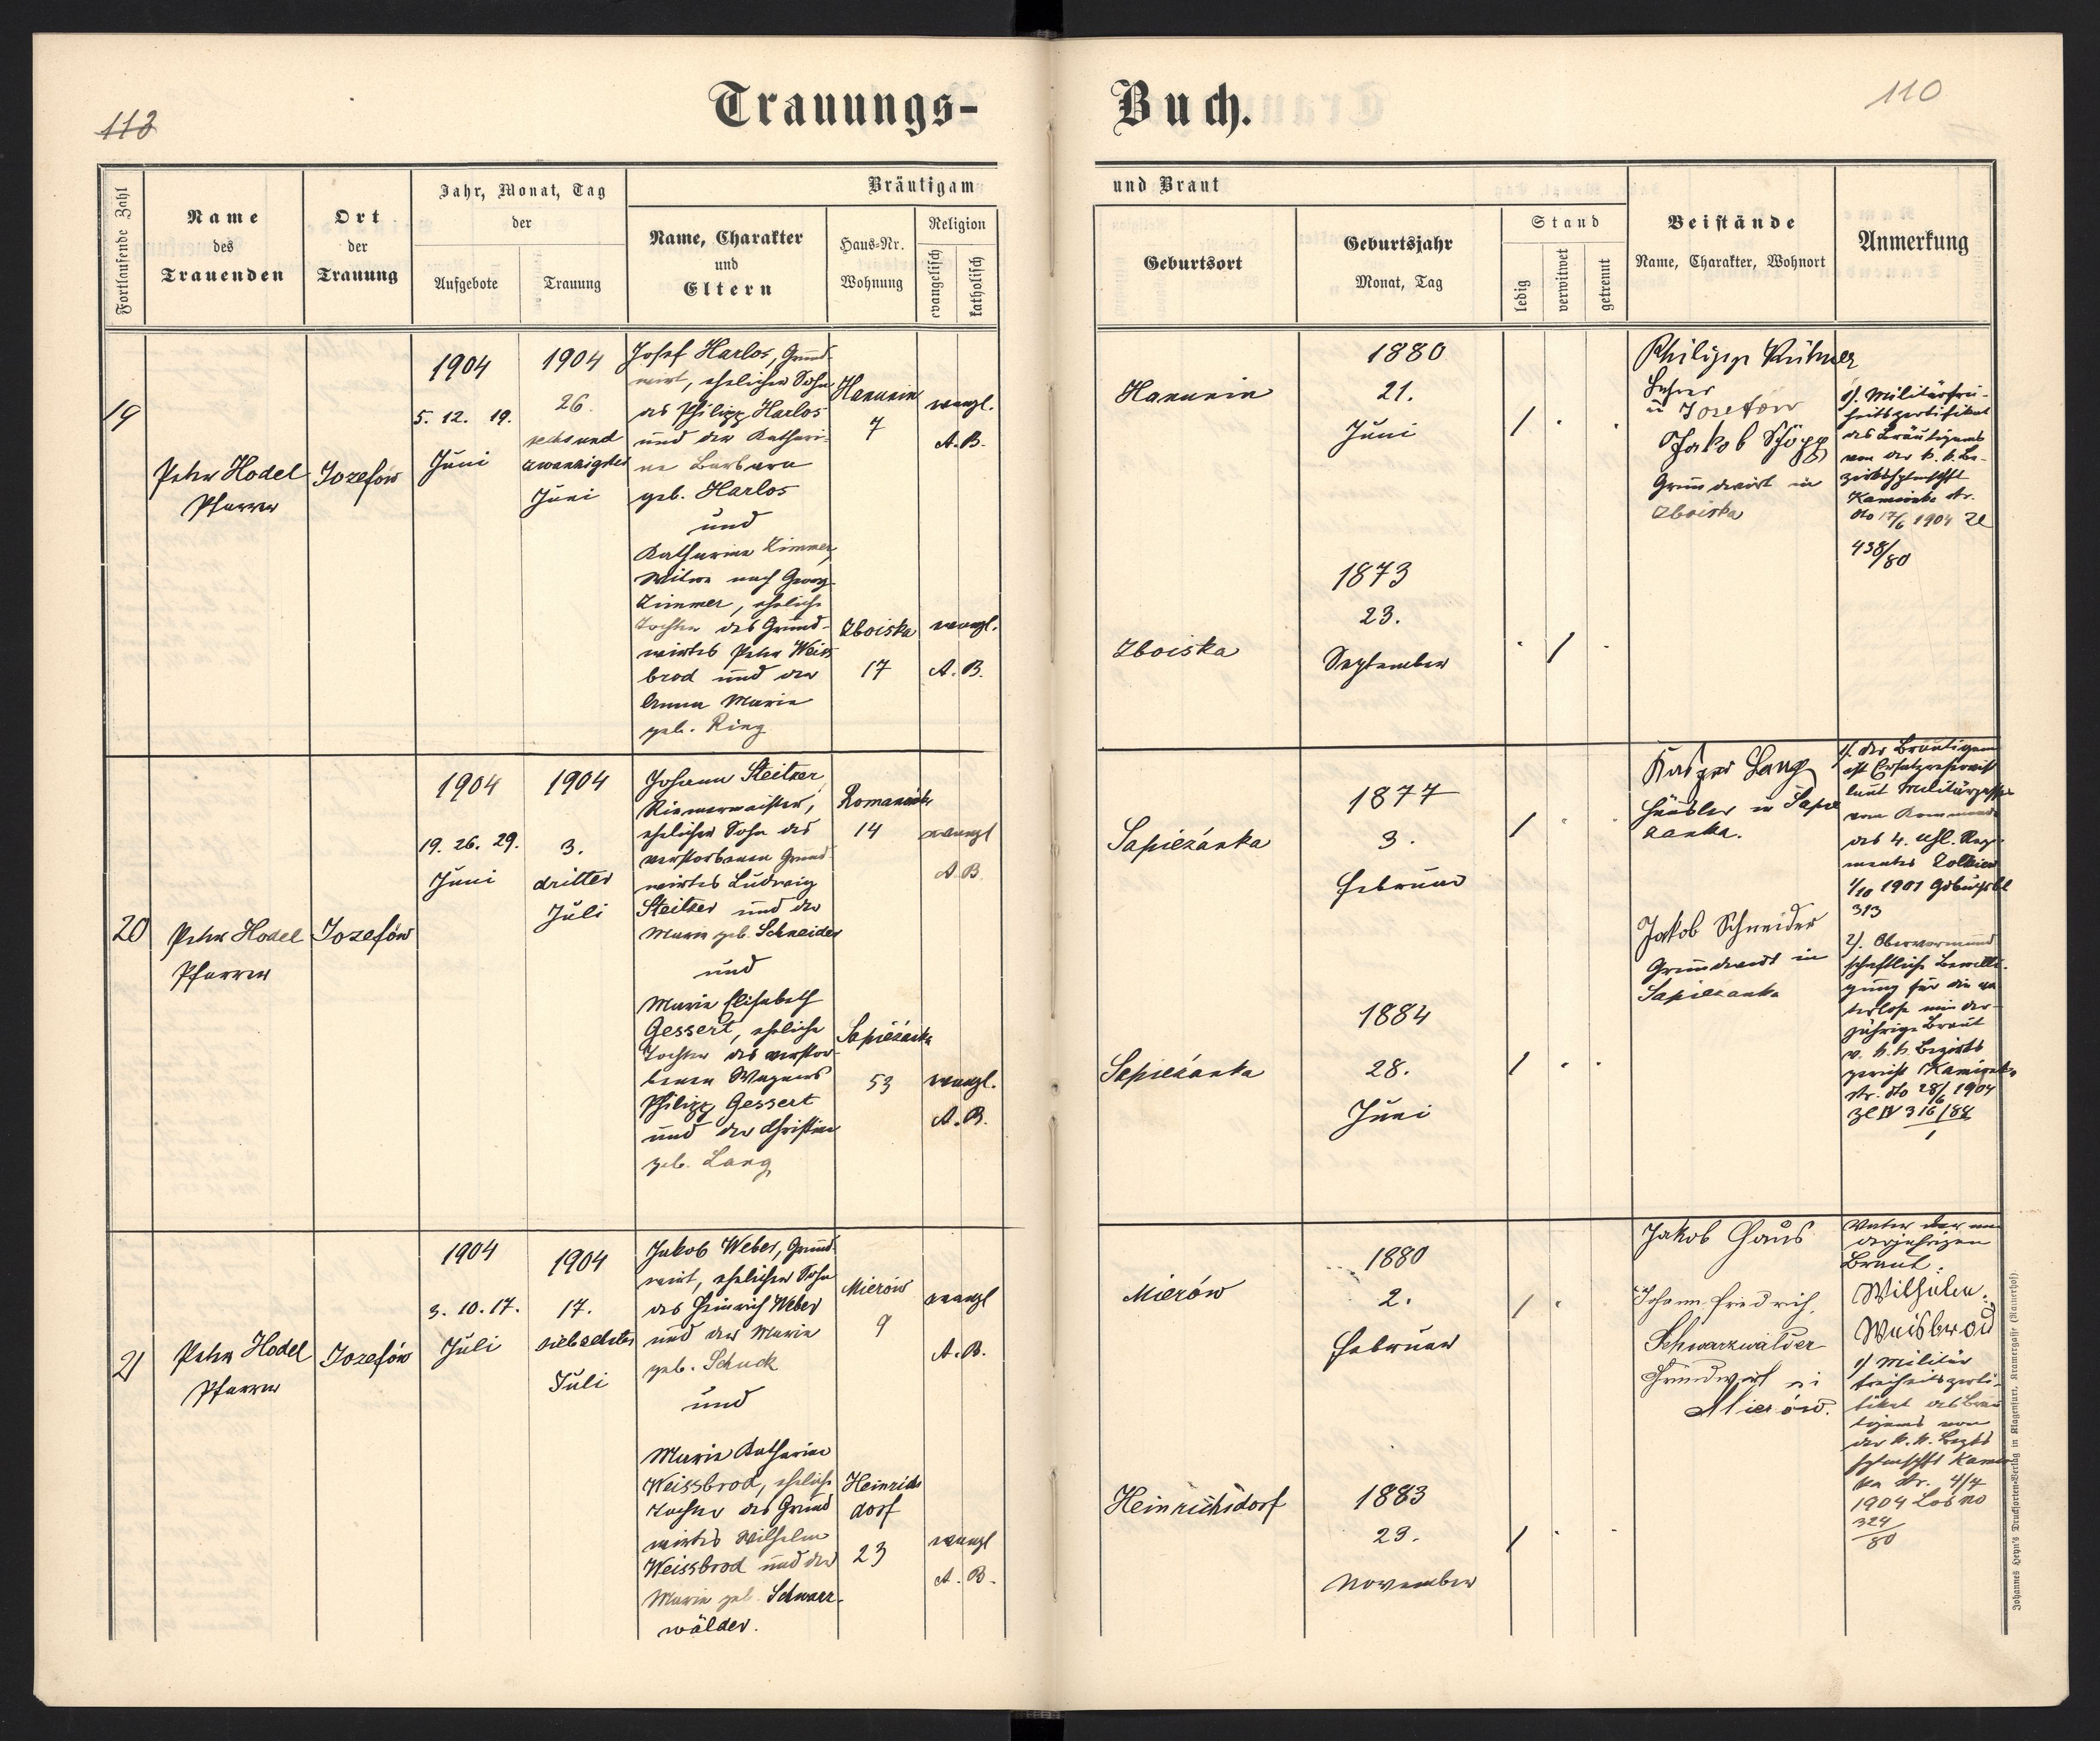 Trauungs-
Buch.
113
110
Fortlaufende Zahl
Name
des
Trauenden
Ort
der
Trauung
Jahr, Monat, Tag
der
Aufgebote
Trauung
Bräutigam
Name, Charakter
und
Eltern
Haus-Nr.
Wohnung
Religion
evangelisch
katholisch
und Braut
Geburtsort
Geburtsjahr
Monat, Tag
Stand
ledig
verwitwet
getrennt
Beistände
Name, Charakter, Wohnort
Anmerkung
19
Peter Hodel
Pfarrer
Jozefów
1904
5. 12. 19.
Juni
1904
26.
sechsund
zwanzigster
Juni
Josef Harlos, Grund-
wirt, ehelicher Sohn
des Philipp Harlos
und der Kathari-
na Barbara
geb. Harlos
und
Katharina Zimmer,
Witwe nach Georg
Zimmer, eheliche
Tochter des Grund-
wirtes Peter Weiss
brod und der
Anna Maria
geb. Ring
Hanunin
7
evangl.
A.B.
Zboiska
17
evangl.
A.B.
Hanunin
1880
21.
Juni
Zboiska
1873
23.
September
Philipp
Lehrer
in Jozefów
Jakob Köpp
Grundwirt in
Zboiska
1). Militärfrei-
heitszertifikat
des Bräutigams
von der k. k. Be-
Kamionka str.
dto 17/6 1904 Zl
438/80
20
Peter Hodel
Pfarrer
Jozefów
1904
19. 26. 29.
Juni
1904
3.
dritter
Juli
Johann Steitzer
Riemermeister,
ehelicher Sohn des
verstorbenen Grund-
wirtes Ludwig
Steitzer und der
Maria geb. Schneider
und
Maria Elisabeth
Gessert, eheliche
Tochter des verstor-
benen Wagners
Philipp Gessert
und der Christine
geb. Lang
14
evangl
A.B.
Sapieżanka
53
evangl.
A.B.
Sapieżanka
1877
3.
Februar
Sapieżanka
1884
28.
Juni
Kasper Lang
Häusler in Sapie
zanka.
Jakob Schneider
Grundwirt in
Sapiezanka
1). Der Bräutigam
ist Ersatzreservist
laut Militärpass
vom Kommando
des 4. Uhl. Reg-
mentes Zolkiew
1/10 1901
313
2). Obervormund
schaftliche Bewilli-
gung für die va
terlose minder-
jährige Braut
v. k. k. Bezirks
gericht Kamionka
str. dto 28/6 1904
Zl IV 316/88
1
21
Peter Hodel
Pfarrer
Jozefów
1904
3. 10. 17.
Juli
1904
17.
siebzehnter
Juli
Jakob Weber, Grund-
wirt, ehelicher Sohn
des Heinrich Weber
und der Maria
geb. Schuck
und
Maria Katharina
Weissbrod, eheliche
Tochter des Grund
wirtes Wilhelm
Weissbrod und der
Maria geb. Schwarz-
wälder.
Mierów
9
evangl
A.B.
Heinrichs
dorf
23
evangl
A.B.
Mierów
1880
2.
Februar
Heinrichsdorf
1883
29.
November
Jakob Gaus
Johann Friedrich
Schwarzwälder
Grundwirt in
Mierów.
Vater der min
derjährigen
Braut:
Wilhelm
Weisbrod
1) Militär
freiheitszerti-
fikat des Bräu
tigams von
der k. k. Bezks
ka str. 4/7
1904
324
80
Johannes Heyn's Drucksorten-Verlag in Klagenfurt, Kramergasse (Rainerhof).